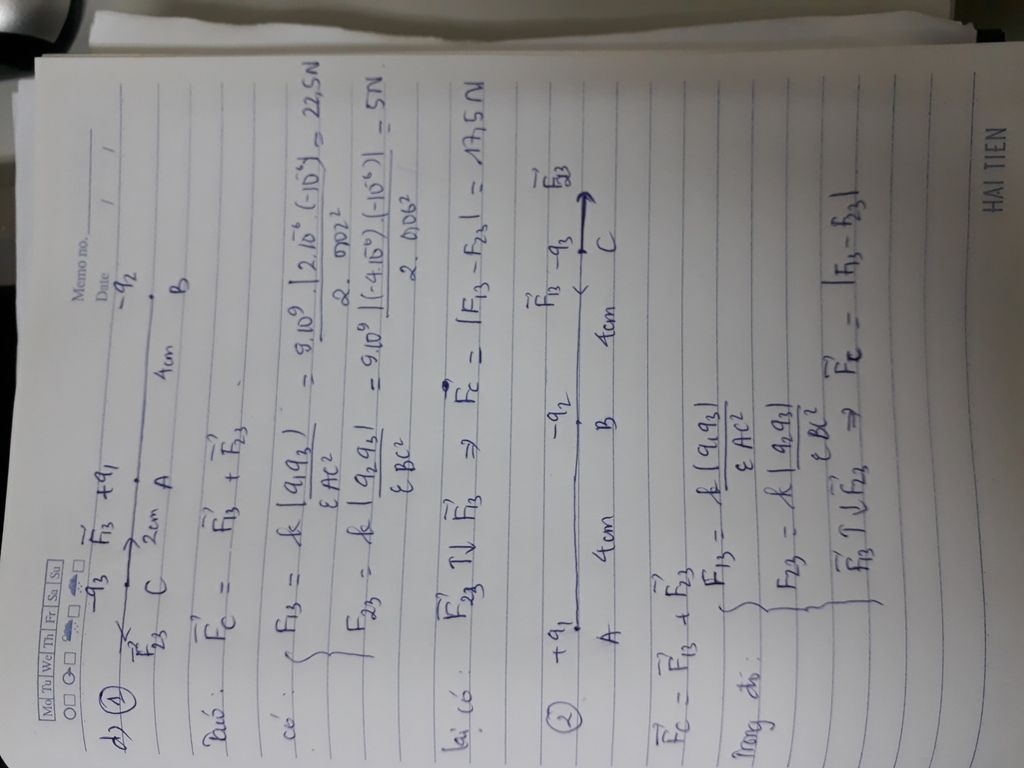 Memo no.
Mo Tu We Th Fr Sa Su
Date / /
d) ① F₂₃ -q₃ F₁₃ +q₁ -q₂
C 2cm A 4cm B
F⃗c = F⃗₁₃ + F⃗₂₃
Có: { F₁₃ = k |q₁q₃| / εAC² = 9.10⁹ |2.10⁻⁶(-10⁻⁶)| / 2.0,02² = 22,5N
F₂₃ = k |q₂q₃| / εBC² = 9.10⁹ |(-4.10⁻⁶)(-10⁻⁶)| / 2.0,06² = 5N
Lại có: F⃗₂₃ ↑↓ F⃗₁₃ ⇒ F⃗c = |F₁₃ - F₂₃| = 17,5N
② +q₁ -q₂ F⃗₁₃ -q₃ F⃗₂₃
A 4cm B 4cm C
F⃗c = F⃗₁₃ + F⃗₂₃
Trong đó: { F₁₃ = k |q₁q₃| / εAC²
F₂₃ = k |q₂q₃| / εBC²
F⃗₁₃ ↑↓ F⃗₂₃ ⇒ F⃗c = |F₁₃ - F₂₃|
HAI TIEN